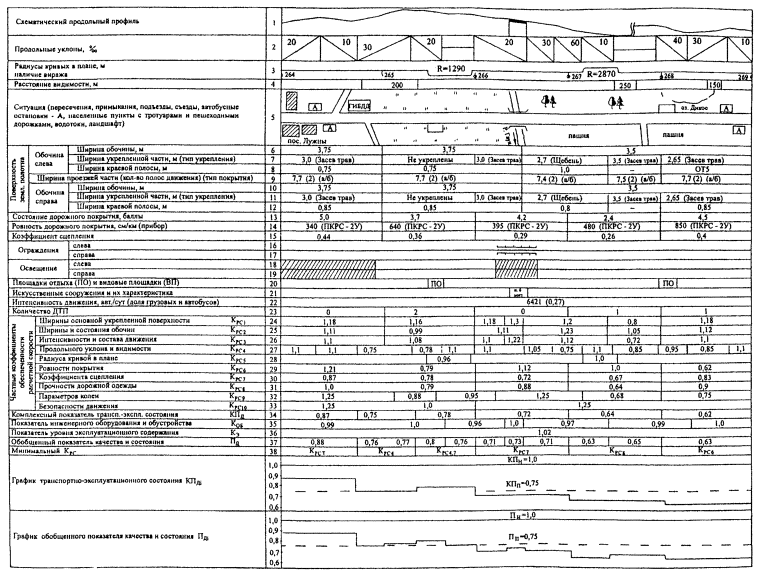 Схематический продольный профиль 1
Продольные уклоны, ‰ 2 20 10 30 20 20 30 60 10 40 30 10
Радиусы кривых в плане, м
наличие виража 3 R=1290 R=2870
264 265 266 267 268 269
Расстояние видимости, м 4 200 250 150
Ситуация (пересечения, примыкания, подъезды, съезды, автобусные
остановки - А, населенные пункты с тротуарами и пешеходными
дорожками, водотоки, ландшафт) 5
А ГИБДД оз. Дикое А А
пос. Лужны пашня пашня
Поверхность земл. полотна
Обочина слева
Ширина обочины, м 6 3,75 3,75 3,5
Ширина укрепленной части, м (тип укрепления) 7 3,0 (Засев трав) Не укреплены 3,0 (Засев трав) 2,7 (Щебень) 3,5 (Засев трав) 2,65 (Засев трав)
Ширина краевой полосы, м 8 0,75 0,75 1,0 – ОТ5
Ширина проезжей части (кол-во полос движения) (тип покрытия) 9 7,7 (2) (а/б) 7,7 (2) (а/б) 7,4 (2) (а/б) 7,5 (2) (а/б) 7,7 (2) (а/б)
Обочина справа
Ширина обочины, м 10 3,75 3,75 3,5
Ширина укрепленной части, м (тип укрепления) 11 3,0 (Засев трав) Не укреплены 3,0 (Засев трав) 2,7 (Щебень) 3,5 (Засев трав) 2,65 (Засев трав)
Ширина краевой полосы, м 12 0,85 0,85 0,8 – 0,85
Состояние дорожного покрытия, баллы 13 5,0 3,7 4,2 2,4 4,5
Ровность дорожного покрытия, см/км (прибор) 14 340 (ПКРС - 2У) 640 (ПКРС - 2У) 395 (ПКРС - 2У) 480 (ПКРС - 2У) 850 (ПКРС - 2У)
Коэффициент сцепления 15 0,44 0,36 0,29 0,26 0,4
Ограждения слева 16
справа 17
Освещение слева 18
справа 19
Площадки отдыха (ПО) и видовые площадки (ВП) 20 ПО ПО
Искусственные сооружения и их характеристика 21
Интенсивность движения, авт./сут (доля грузовых и автобусов) 22 6421 (0,27)
Количество ДТП 23 0 2 0 1 1
Частные коэффициенты обеспеченности расчетной скорости
Ширины основной укрепленной поверхности КРС1 24 1,18 1,16 1,18 1,3 1,2 0,8 1,18
Ширины и состояния обочин КРС2 25 1,11 0,99 1,11 1,23 1,05 1,12
Интенсивности и состава движения КРС3 26 1,1 1,08 1,1 1,22 1,12 0,72 1,1
Продольного уклона и видимости КРС4 27 1,1 1,1 0,75 0,78 1,1 1,1 1,05 0,75 1,1 0,85 0,95 0,85 1,1
Радиуса кривой в плане КРС5 28 0,96 1,0
Ровности покрытия КРС6 29 1,21 0,79 1,12 1,0 0,62
Коэффициента сцепления КРС7 30 0,87 0,78 0,72 0,67 0,83
Прочности дорожной одежды КРС8 31 1,0 0,79 0,88 0,64 0,9
Параметров колеи КРС9 32 1,25 0,88 0,95 1,25 0,68 0,75
Безопасности движения КРС10 33 1,25 1,0 1,25
Комплексный показатель трансп.-экспл. состояния КПД 34 0,87 0,75 0,78 0,72 0,64 0,62
Показатель инженерного оборудования и обустройства КОБ 35 0,99 1,0 0,96 1,0 0,97 0,99 1,0
Показатель уровня эксплуатационного содержания КЭ 36 1,02
Обобщенный показатель качества и состояния ПД 37 0,88 0,76 0,77 0,8 0,76 0,71 0,73 0,71 0,63 0,65 0,63
Минимальный КРС 38 КРС7 КРС4 КРС4,7 КРС7 КРС8 КРС6
График транспортно-эксплуатационного состояния КПД
1,0 0,9 0,8 0,7 0,6
КПН=1,0
КПП=0,75
График обобщенного показателя качества и состояния ПД
1,0 0,9 0,8 0,7 0,6
ПН=1,0
ПП=0,75